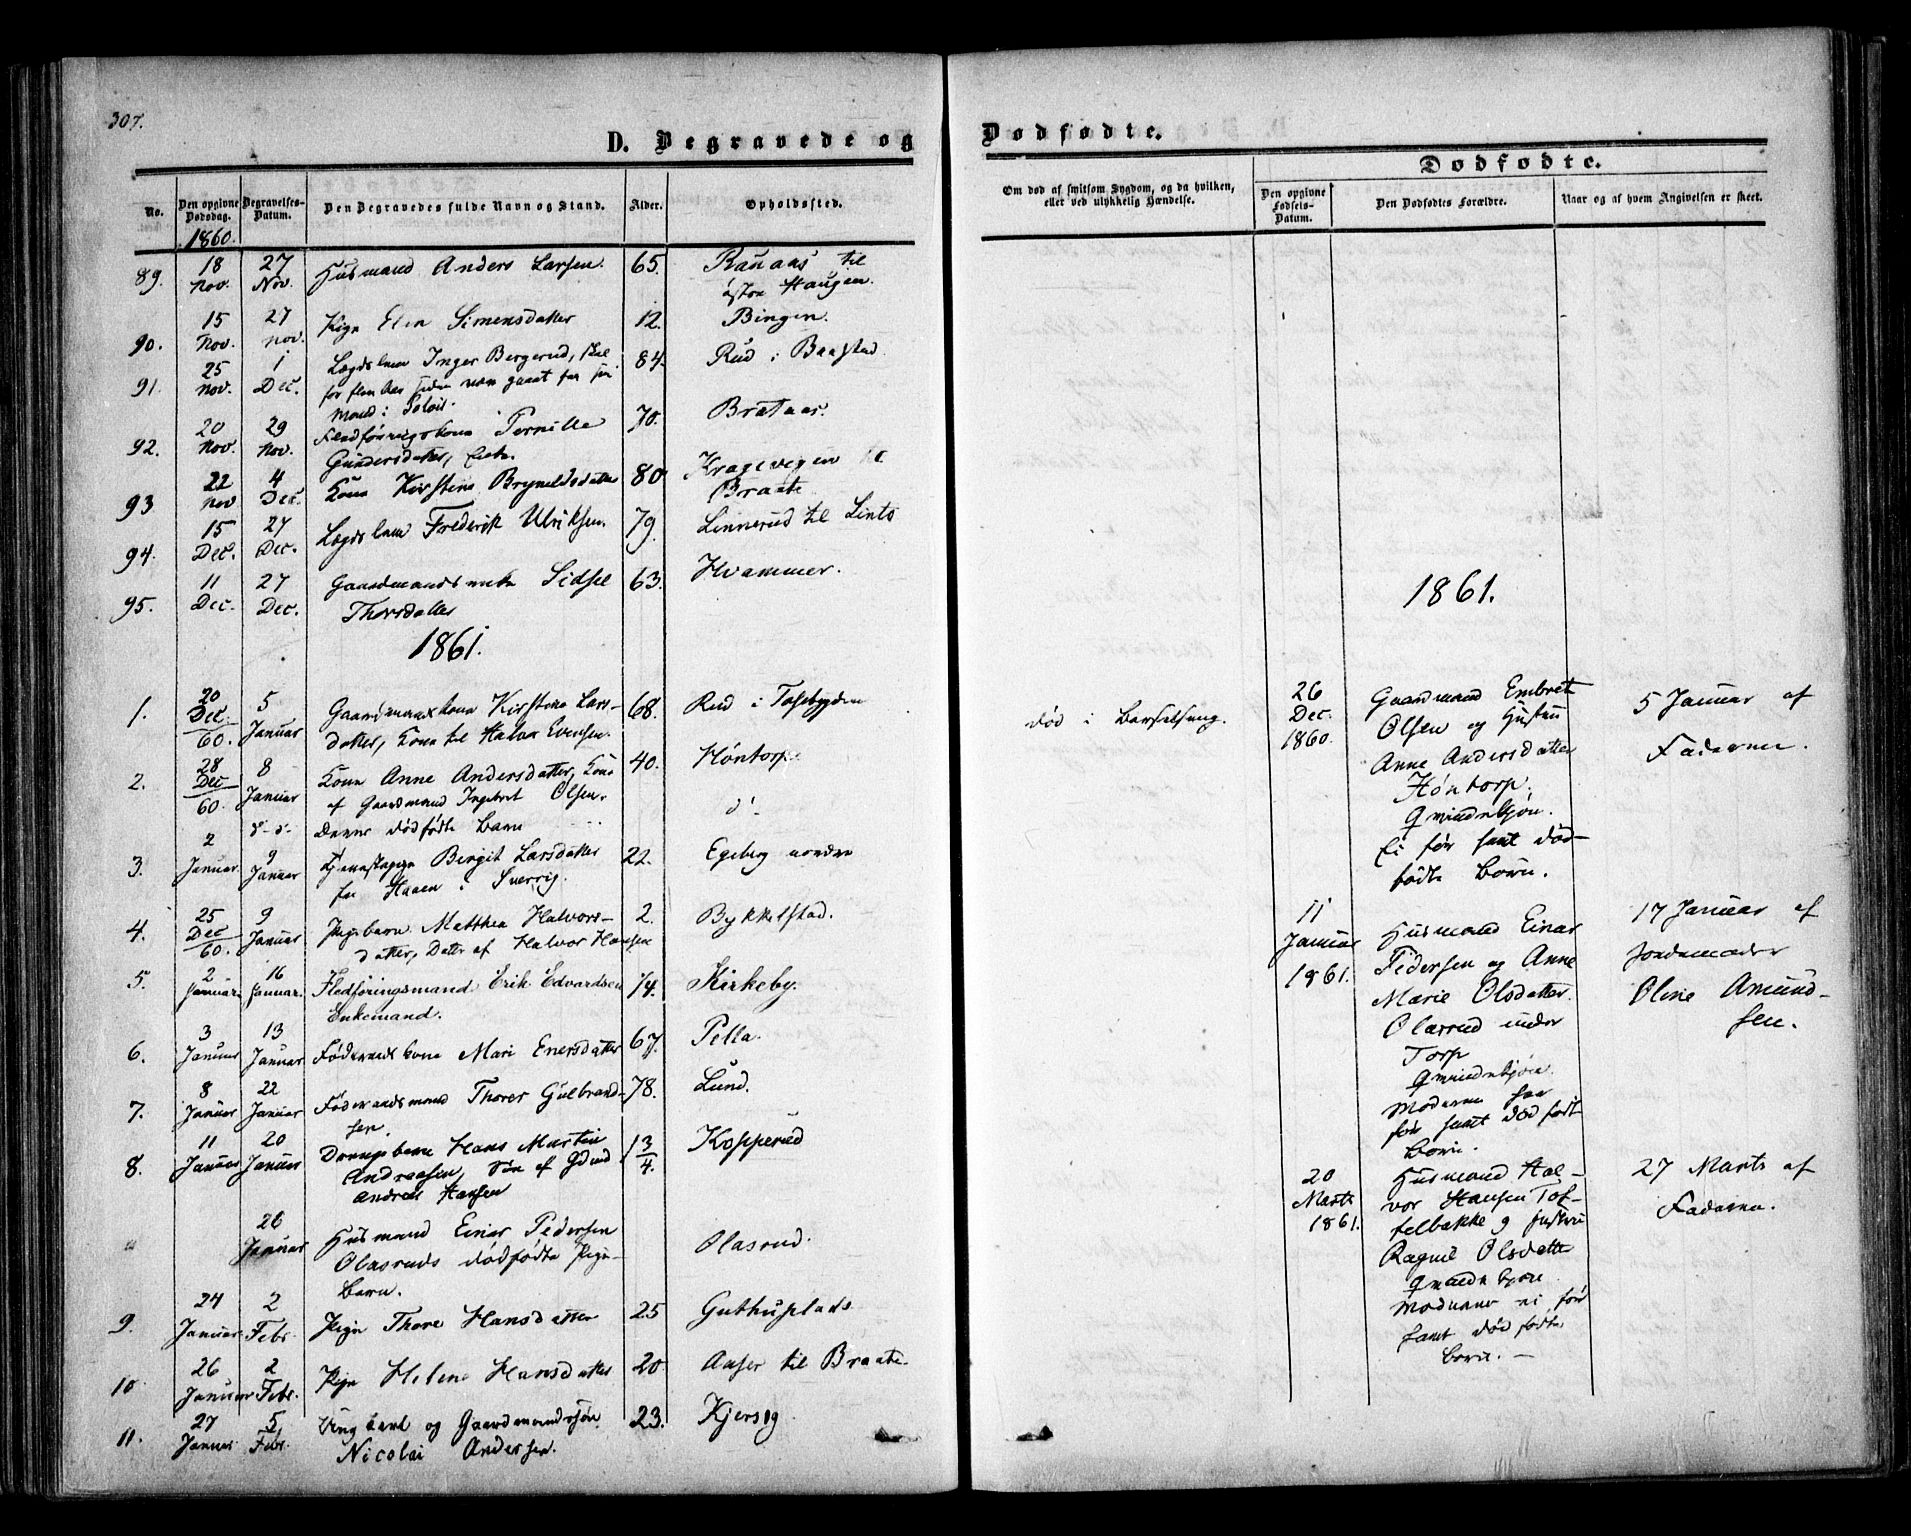 307.
D. Begravede og
No.
Den opgivne Dødsdag.
Begravelses-Datum.
Den Begravedes fulde Navn og Stand.
Alder.
Opholdssted.
1860.
89. 18 Nov. 27 Nov. Husmand Anders Larsen. 65. Ranaas til
østre Haugen.
90. 15 Nov. 27 Nov. Pige Elen Simensdatter 12. Bingen.
91. 25 Nov. 1 Dec. Lægdslem Inger Bergerud, 84. Rud i Baastad
92. 20 Nov. 29 Nov. Fledføringskone Pernille 70. Brataas.
Gundersdatter, Enke.
93 22 Nov 4 Dec. Kone Kirstine Bryneldsdatter 80 Kragevegen til
Braate
94. 15 Dec. 27 Dec. Lægdslem Frederik Ulriksen. 79. Linnerud til Linto
95. 11 Dec. 27 Dec. Gaardmandsenke Sidsel 63. Hvammer.
Thorsdatter
1861.
1. 20 Dec. 60. 5 Januar Gaardmandskone Kirstine Lars- 68. Rud i Tosebygden
datter, Kone til Halvor Evensen.
2. 28 Dec 60. 8 Januar Kone Anne Andersdatter, Kone 40. Høntorp
af Gaardmand Ingebret Olsen.
d-d- Dennes dødfødte Barn d-
3. 2 Januar 9 Januar Tjenestepige Birgit Larsdatter 22. Egeberg nordre
fra Haaen i Sverrig.
4. 25 Dec 60. 9 Januar Pigebarn Matthea Halvors- 2. Bykkelstad.
datter, Datter af Halvor Hansen
5. 2 Januar. 16 Januar. Fledføringsmand Erik Edvardsen 74. Kirkeby.
Enkemand.
6. 3 Januar 13 Januar Føderaadskone Mari Enersdatter 67. Pella.
7. 8 Januar 22 Januar Føderaadsmand Thorer Gulbrand- 78. Lund.
sen.
8. 11 Januar 20 Januar Drengebarn Hans Martin 1 3/4. Kopperud
Andreasen, Søn af Gdmd
Andreas Hansen
26 Januar Husmand Einar Pedersen Olasrud.
Olasruds dødfødte Pige-
Barn.
9. 24 Januar 2 Febr. Pige Thore Hansdatter 25 Guthusplads
10 26 Januar 2 Febr. Pige Helene Hansdatter 20 Aaser til Braate.
11. 27 Januar 5 Febr. Ungkarl og Gaardmandssøn 23. Kjersög
Nicolai Andersen.
Dødfødte.
Om død af smitsom Sygdom, og da hvilken,
eller ved ulykkelig Hændelse.
Dødfødte.
Den opgivne Fødsels-Datum.
Den Dødfødtes Forældre.
Naar og af hvem Angivelsen er skeet.
1861.
død i Barselseng.
26 Dec. 1860. Gaardmand Embret 5 Januar af
Olsen og Hustru Faderen.
Anne Andersdatter
Høntorp.
Qvindekjøn.
Ei før havt død-
fødte Børn.
11 Januar 1861. Husmand Einar 17 Januar af
Pedersen og Anne Jordemoder
Marie Olsdatter. Oline Amund-
Olasrud under sen.
Torp
Qvindekjøn.
Moderen har
før havt dødfødt
Børn.
20 Marts 1861. Husmand Hal- 27 Marts af
vor Hansen Tof- Faderen.
telbakke og Hustru
Ragnil Olsdatter
Qvindekjøn
Moderen ei før
havt dødfødte
Børn. —